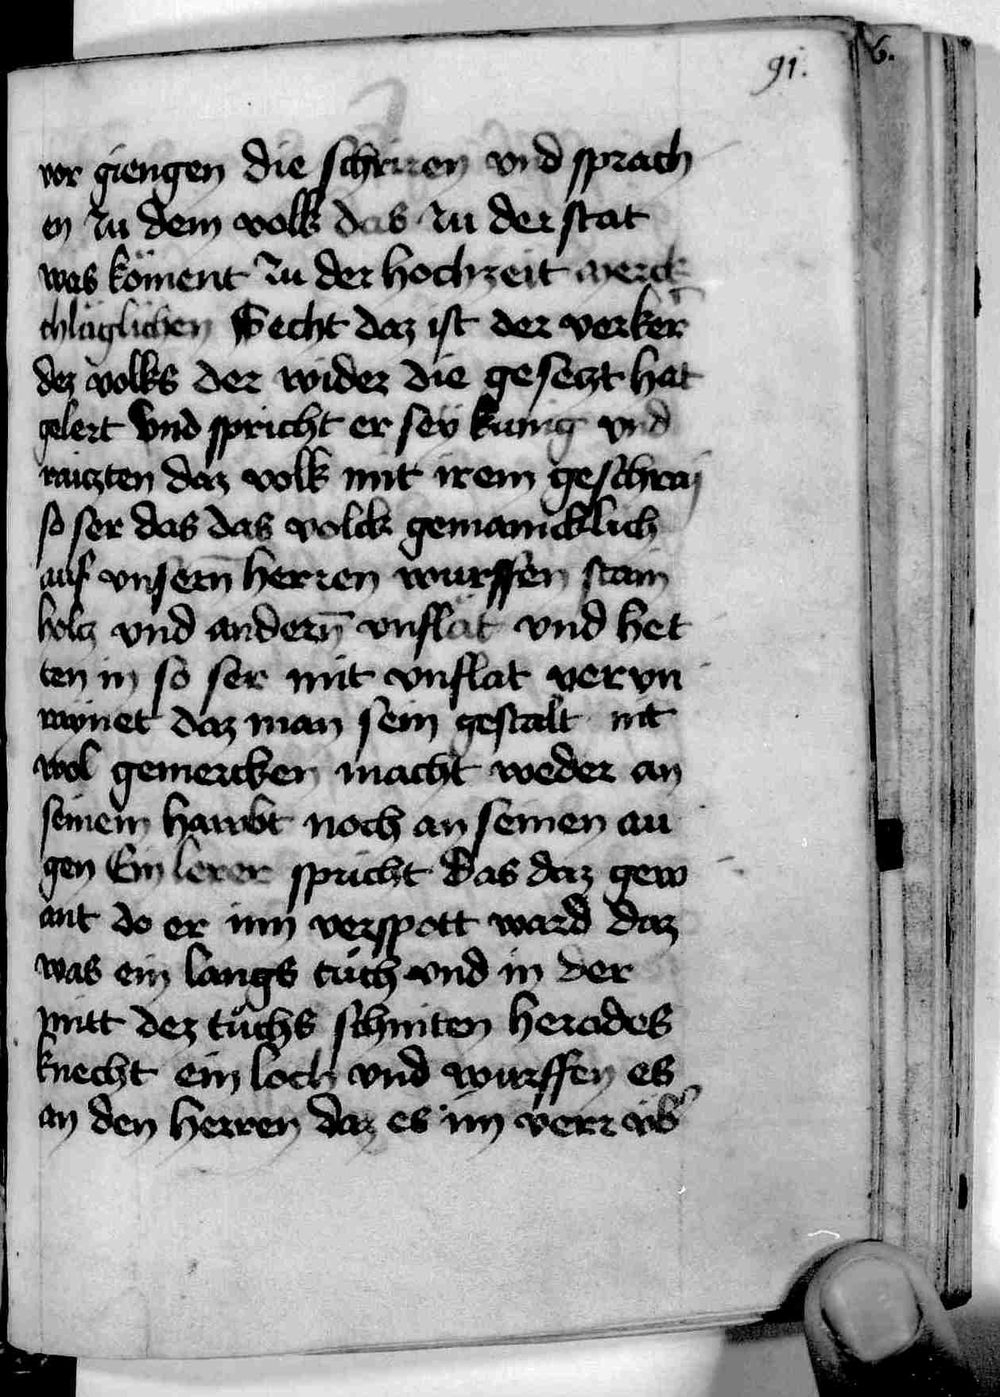 91.
6.
vor giengen die schriren vnd sprach
en zu dem volk das zu der stat
was köment zu der hochzeit merck
chlüglichen Secht daz ist der verker̄
dez volks der wider die gesetzt hat
gelert Vnd spricht er seÿ kunig vnd
raitzten daz volk mit irem geschraÿ
so ser das das volck gemaincklich
auf vnsern̄ herren wurffen stain
holtz vnd andern̄ vnflät vnd het
ten in so ser mit vnflat verun
rainet daz man sein gestalt nit
wol gemercken macht weder an
seinem hawbt noch an seinen au
gen Ein lerer spricht Das daz gew
ant do er inn verspott ward daz
was ein langs tuch vnd in der
mitt dez tuchs schniten herodes
knecht ein loch vnd wurffen es
an den herren daz es im verr vb̓